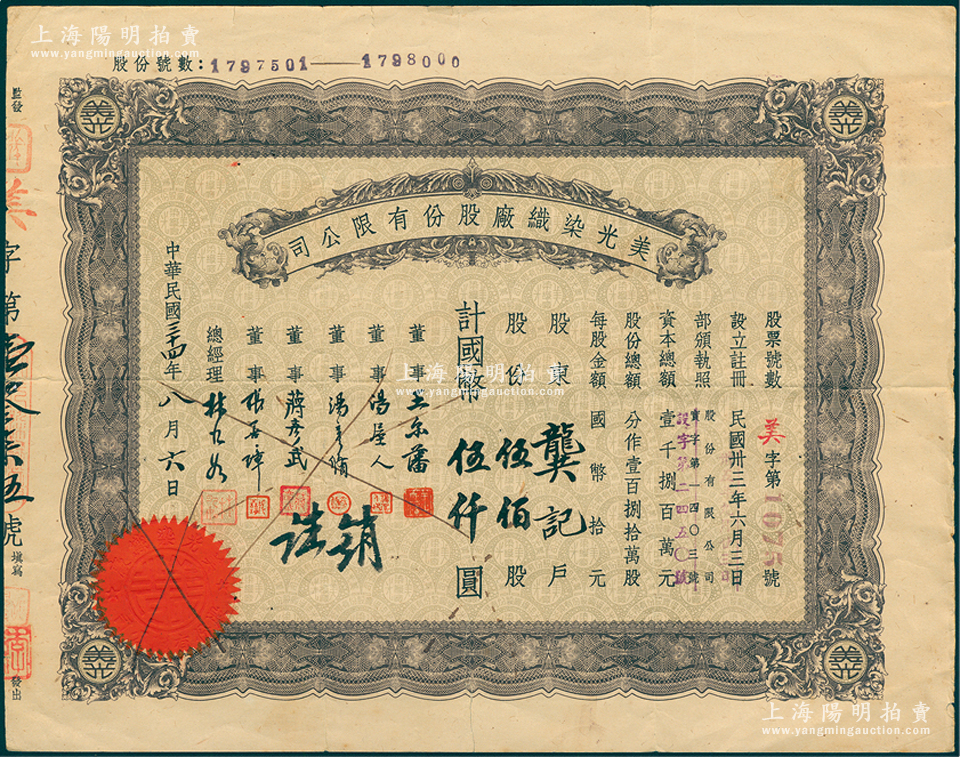 上海陽明拍賣
www.yangmingauction.com
股份號數：1797501——1798000
美光染織廠股份有限公司
股票號數 美字第1075號
設立註冊 民國卅三年六月三日
部頒執照 股份有限公司
實字第一四〇三號
設字第二四五〇號
資本總額 壹千捌百萬元
股份總額 分作壹百捌拾萬股
每股金額 國幣拾元
股東 龔記 戶
股份 伍佰 股
計國幣 伍仟 圓
董事
董事 湯屋人
董事
董事 蔣彥武
董事
總經理
中華民國三十四年八月六日
註銷
監發
美字第
號
填寫
發出
上海陽明拍賣
www.yangmingauction.com
上海陽明拍賣
www.yangmingauction.com
美光
美光
美光
美光